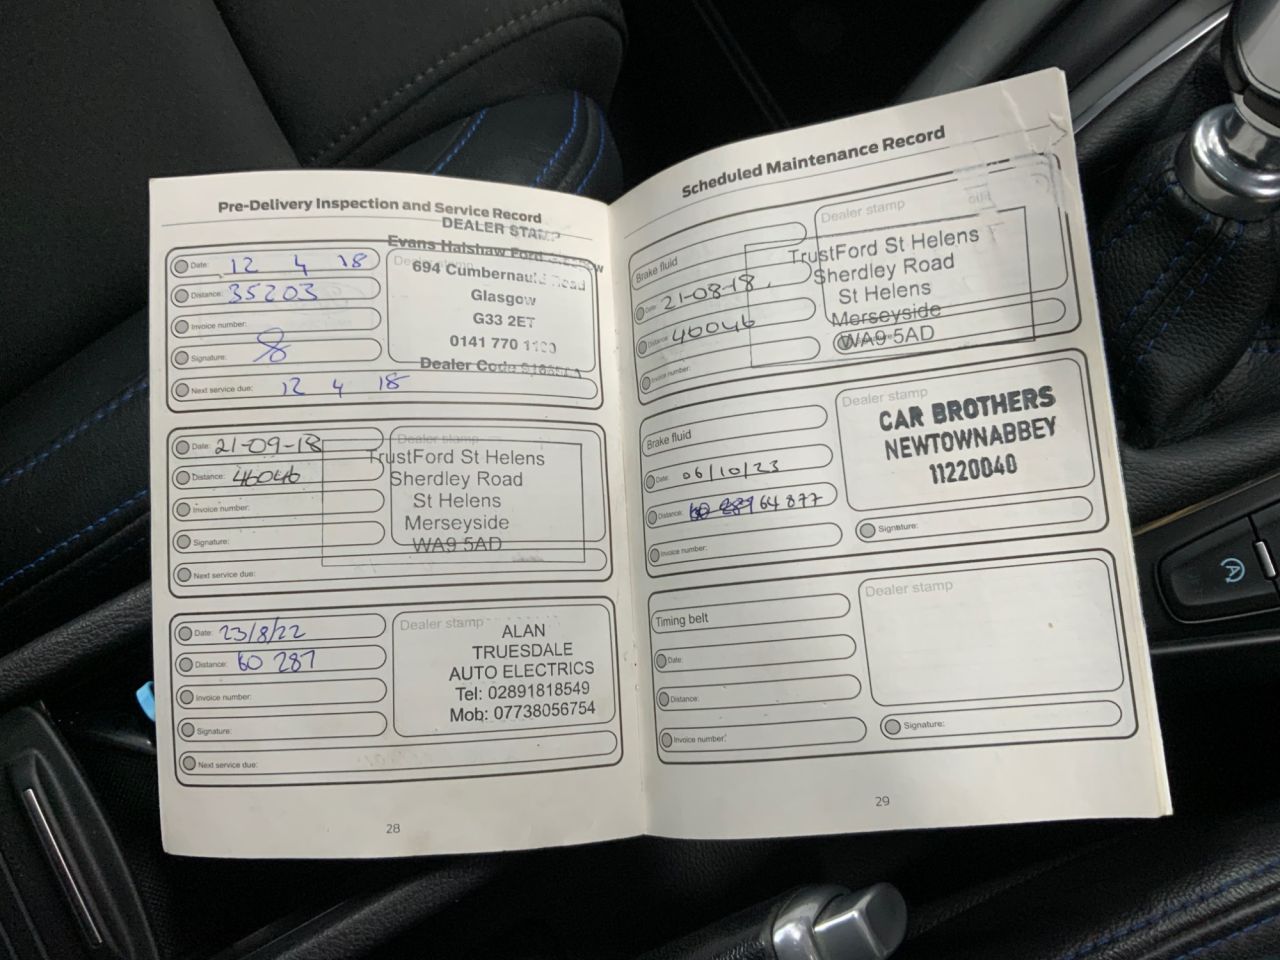 Pre-Delivery Inspection and Service Record
DEALER STAMP
Evans Halshaw Ford
694 Cumbernauld Road
Glasgow
G33 2ET
0141 770
Dealer Code
Date: 12 4 18
Distance: 35203
Invoice number:
Signature:
Next service due: 12 4 18
Date: 21-09-18
Distance: 46046
Invoice number:
Signature:
Next service due:
Dealer stamp
TrustFord St Helens
Sherdley Road
St Helens
Merseyside
WA9 5AD
Date: 23/8/22
Distance: 60 287
Invoice number:
Signature:
Next service due:
Dealer stamp
ALAN
TRUESDALE
AUTO ELECTRICS
Tel: 02891818549
Mob: 07738056754
28
Scheduled Maintenance Record
Brake fluid
Date: 21-08-18.
Distance: 40046
Invoice number:
Dealer stamp
TrustFord St Helens
Sherdley Road
St Helens
Merseyside
WA9 5AD
Brake fluid
Date: 06/10/23
Distance: 64 877
Invoice number:
Dealer stamp
CAR BROTHERS
NEWTOWNABBEY
11220040
Signature:
Timing belt
Date:
Distance:
Invoice number:
Dealer stamp
Signature:
29